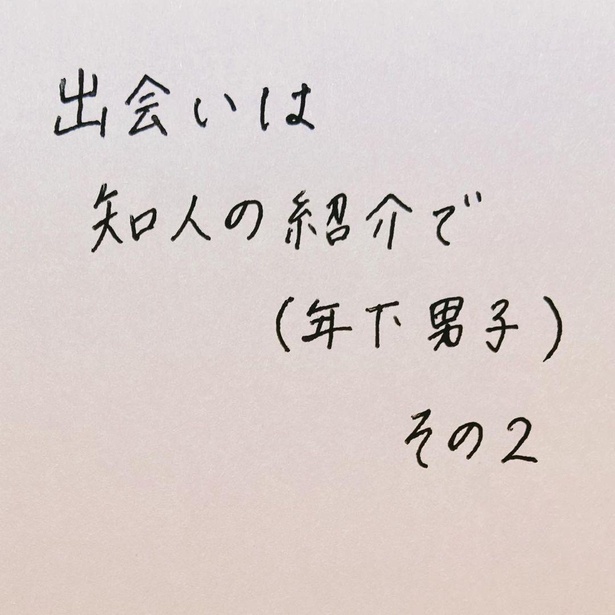 出会いは
知人の紹介で
(年下男子)
その2